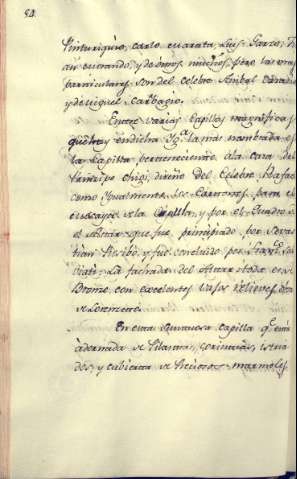 54.
Pinturiquio, Carlo Marata, Luis Garzi,
y de otros muchos, pero las mas
particulares son del celebre Anibal Caraci
y de Miguel Carbagio.
Entre varias Capillas magnificas
que hay en dicha Yg.ª la mas nombrada es
la Capilla perteneciente a la Casa del
Principe Chigi, diseño del Celebre Rafael
como igualmente los Cartones para
mosayco de la Capilla, y por el Quadro
el Altar que fue principiado por Sevas
tian y fue concluido por Fran.
La fachada del Altar toda es de
Bronce con excelentes vajos relieves obra
de Lorencete.
En esta suntuosa Capilla q.e está
adornada de Pilastras, corintias, estria
das, y cubierta de preciosos marmoles,